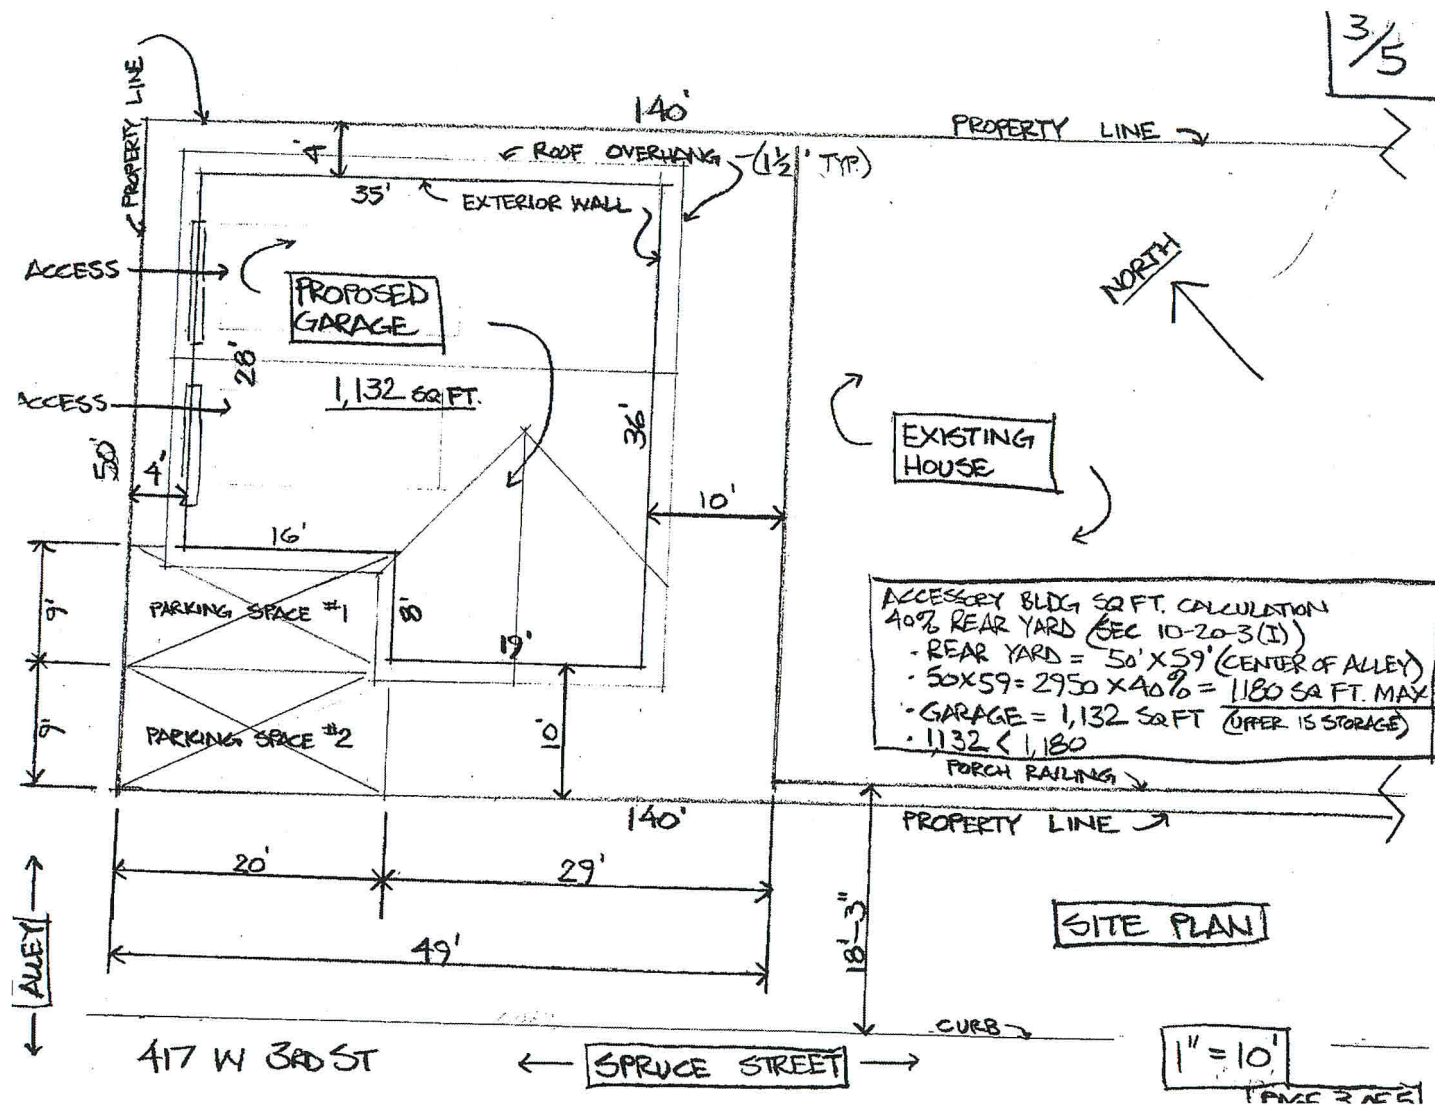 3/5
PROPERTY LINE
140'
PROPERTY LINE
PROPERTY LINE
4'
ROOF OVERHANG (1½' TYP.)
35'
EXTERIOR WALL
ACCESS
PROPOSED
GARAGE
NORTH
28'
1,132 SQ FT.
ACCESS
36'
EXISTING
HOUSE
50'
4'
10'
16'
9'
PARKING SPACE #1
8'
19'
ACCESSORY BLDG SQ FT. CALCULATION
40% REAR YARD (SEC 10-20-3(I))
· REAR YARD = 50' X 59' (CENTER OF ALLEY)
· 50X59 = 2950 X 40% = 1180 SQ FT. MAX
· GARAGE = 1,132 SQ FT (UPPER IS STORAGE)
· 1132 < 1,180
9'
PARKING SPACE #2
10'
PORCH RAILING
140'
PROPERTY LINE
20'
29'
18'-3"
SITE PLAN
ALLEY
49'
CURB
417 W 3RD ST
SPRUCE STREET
1" = 10'
PAGE 3 OF 5